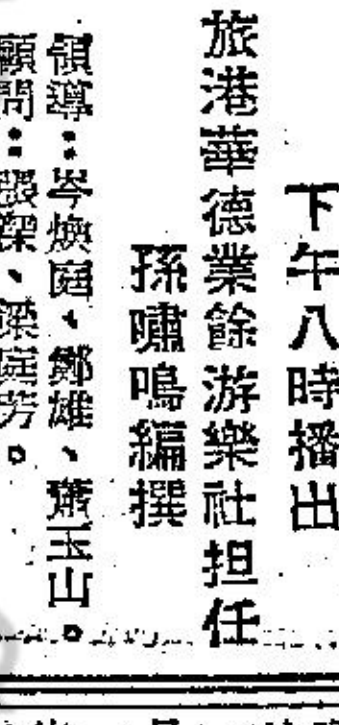 下午八時播出
旅港華德業餘游樂社担任
孫嘯鳴編撰
領導：岑煥庭、鄭雄、蕭玉山。
顧問：殷深、梁庭芳。